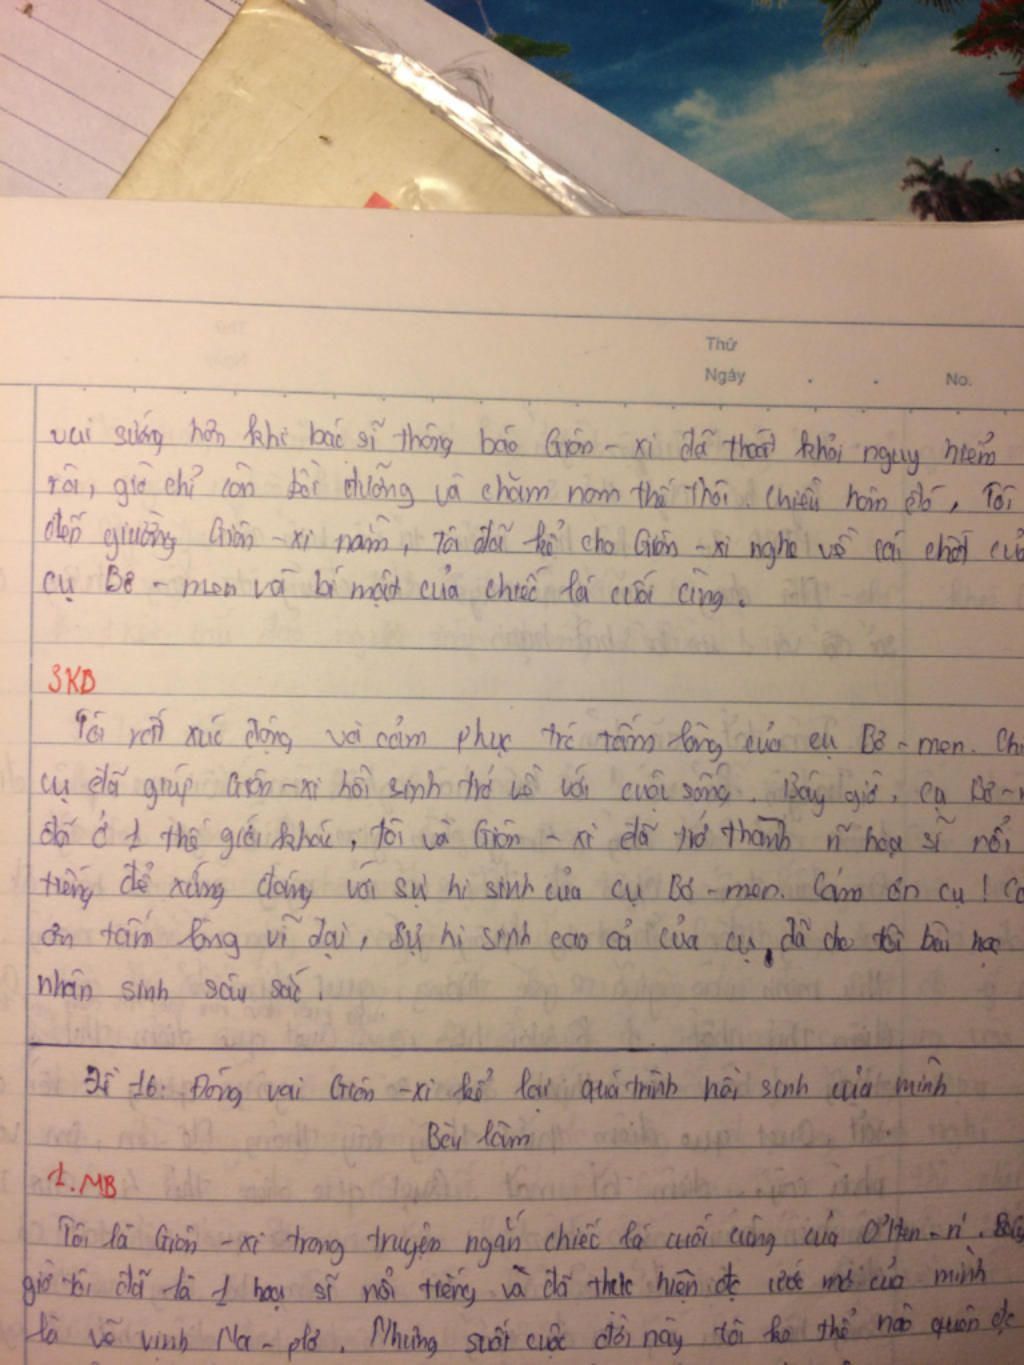 Thứ
Ngày
No.
vui sướng hơn khi bác sĩ thông báo Giôn-xi đã thoát khỏi nguy hiểm
rồi, giờ chỉ còn bồi dưỡng và chăm nom thế thôi. Chiều hôm đó, Tôi
đến giường Giôn-xi nằm, tôi đã kể cho Giôn-xi nghe về cái chết của
cụ Bơ-men và bí mật của chiếc lá cuối cùng.
3KB
Tôi rất xúc động và cảm phục trc tấm lòng của cụ Bơ-men. Chí
cụ đã giúp Giôn-xi hồi sinh trở về với cuộc sống. Bây giờ, cụ Bơ-
đã ở 1 thế giới khác, tôi và Giôn-xi đã trở thành n~ hoạ sĩ nổi
tiếng để xứng đáng với sự hi sinh của cụ Bơ-men. Cảm ơn cụ! Cả
ơn tấm lòng vĩ đại, sự hi sinh cao cả của cụ, đã cho tôi bài học
nhân sinh sâu sắc.
Đề 16: Đóng vai Giôn-xi kể lại quá trình hồi sinh của mình
Bài làm
1.MB
Tôi là Giôn-xi trong truyện ngắn chiếc lá cuối cùng của O'Hen-ri. Bây
giờ tôi đã là 1 hoạ sĩ nổi tiếng và đã thực hiện đc ước mơ của mình
là vẽ vịnh Na-plơ. Nhưng suốt cuộc đời này tôi ko thể nào quên đc